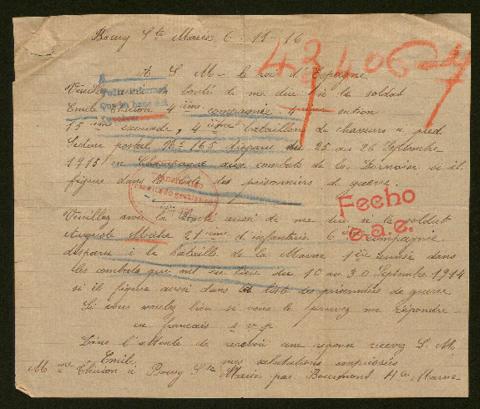 Bourg Ste Marie 6 - 11 - 16
43406-4
A S M - le roi d'Espagne
Veuillez la bonté de me dire si le soldat
Emile Thirion 4 ième compagnie 4 ième
15 ième escouade, 4 ième bataillon de chasseurs à pied
Secteur postal No 165 disparu du 25 au 26 Septembre
1915 en aux combats de la si il
figure dans la liste des prisonniers de guerre.
Veuillez avoir la bonté aussi de me dire si le soldat
Auguste 21 ième d'infanterie 6 compagnie
disparu à la bataille de la Marne dans
les combats qui ont eu lieu du 10 au 30 Septembre 1914
si il figure aussi dans la liste des prisonniers de guerre
Fecho
e.a.e.
Si vous voulez bien si vous le pouvez me répondre
en français s v p
Dans l'attente de recevoir une réponse recevez S. M.
mes salutations empressées
Mme Emile Thirion à Bourg Ste Marie par Bourmont Hte Marne